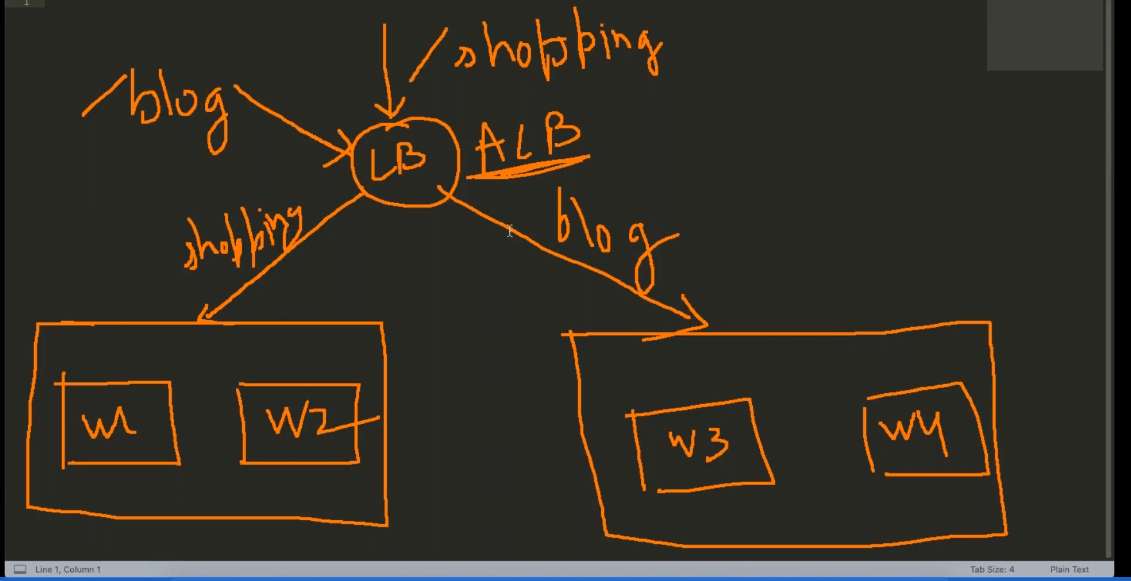 1
/shopping
/blog
LB
ALB
shopping
blog
W1
W2
W3
W4
Line 1, Column 1
Tab Size: 4
Plain Text